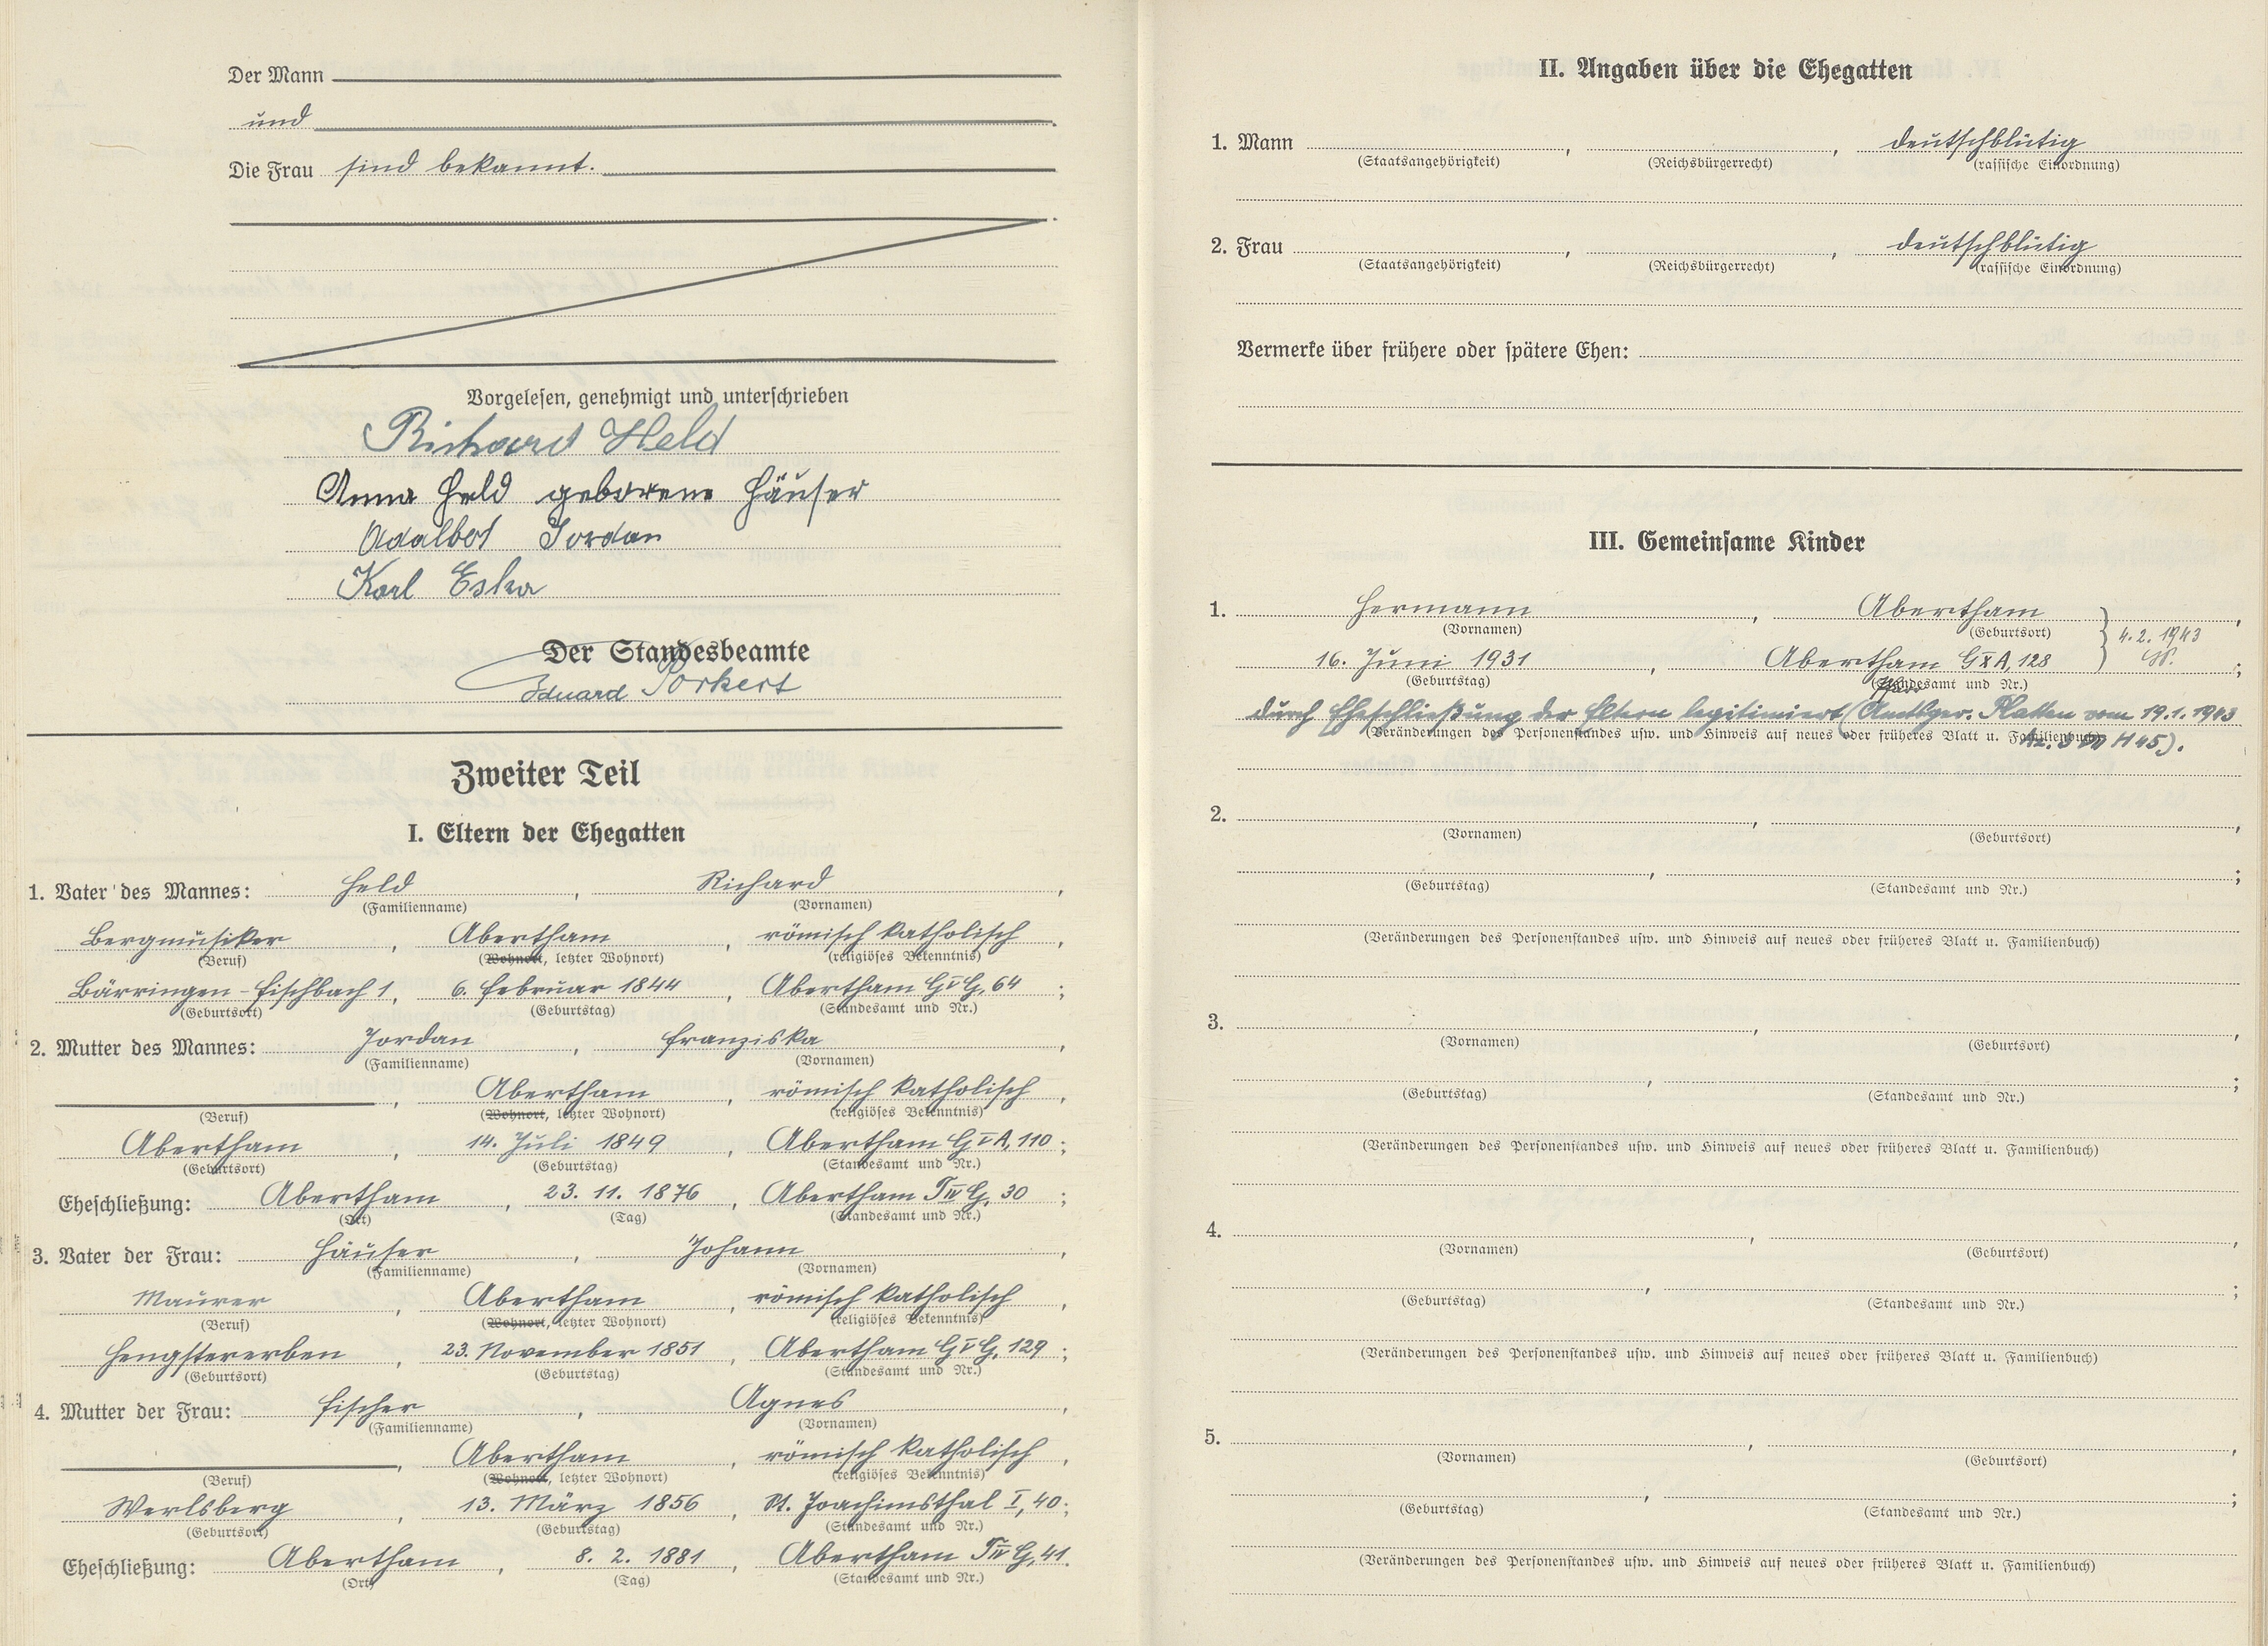 Der Mann
und
Die Frau sind bekannt.
Vorgelesen, genehmigt und unterschrieben
Richard Held
Anna Held geborene Häuser
Adalbert Jordan
Karl Eska
Der Standesbeamte
Eduard Porkert
Zweiter Teil
I. Eltern der Ehegatten
1. Vater des Mannes: Held, Richard,
(Familienname) (Vornamen)
Bergmusiker, Abertham, römisch katholisch,
(Beruf) (Wohnort, letzter Wohnort) (religiöses Bekenntnis)
Bärringen-Fischbach 1, 6. Februar 1844, Abertham G V G, 64;
(Geburtsort) (Geburtstag) (Standesamt und Nr.)
2. Mutter des Mannes: Jordan, Franziska,
(Familienname) (Vornamen)
, Abertham, römisch katholisch,
(Beruf) (Wohnort, letzter Wohnort) (religiöses Bekenntnis)
Abertham, 14. Juli 1849, Abertham G V A, 110;
(Geburtsort) (Geburtstag) (Standesamt und Nr.)
Eheschließung: Abertham, 23. 11. 1876, Abertham T IV G, 30;
(Ort) (Tag) (Standesamt und Nr.)
3. Vater der Frau: Häuser, Johann,
(Familienname) (Vornamen)
Maurer, Abertham, römisch katholisch,
(Beruf) (Wohnort, letzter Wohnort) (religiöses Bekenntnis)
Hengstererben, 23. November 1851, Abertham G V G, 129;
(Geburtsort) (Geburtstag) (Standesamt und Nr.)
4. Mutter der Frau: Fischer, Agnes
(Familienname) (Vornamen)
, Abertham, römisch katholisch,
(Beruf) (Wohnort, letzter Wohnort) (religiöses Bekenntnis)
Werlsberg, 13. März 1856, St. Joachimsthal I, 40;
(Geburtsort) (Geburtstag) (Standesamt und Nr.)
Eheschließung: Abertham, 8. 2. 1881, Abertham T IV G, 41.
(Ort) (Tag) (Standesamt und Nr.)
II. Angaben über die Ehegatten
1. Mann , , deutschblütig
(Staatsangehörigkeit) (Reichsbürgerrecht) (rassische Einordnung)
2. Frau , , deutschblütig
(Staatsangehörigkeit) (Reichsbürgerrecht) (rassische Einordnung)
Vermerke über frühere oder spätere Ehen:
III. Gemeinsame Kinder
1. Hermann, Abertham,
(Vornamen) (Geburtsort) 4. 2. 1943
16. Juni 1931, Abertham G X A, 128;
(Geburtstag) (Standesamt und Nr.)
durch Eheschließung der Eltern legitimiert (Amtsger. Platten vom 19.1.1943
(Veränderungen des Personenstandes usw. und Hinweis auf neues oder früheres Blatt u. Familienbuch)
H 45).
2. , ,
(Vornamen) (Geburtsort)
, ;
(Geburtstag) (Standesamt und Nr.)
(Veränderungen des Personenstandes usw. und Hinweis auf neues oder früheres Blatt u. Familienbuch)
3. , ,
(Vornamen) (Geburtsort)
, ;
(Geburtstag) (Standesamt und Nr.)
(Veränderungen des Personenstandes usw. und Hinweis auf neues oder früheres Blatt u. Familienbuch)
4. , ,
(Vornamen) (Geburtsort)
, ;
(Geburtstag) (Standesamt und Nr.)
(Veränderungen des Personenstandes usw. und Hinweis auf neues oder früheres Blatt u. Familienbuch)
5. , ,
(Vornamen) (Geburtsort)
, ;
(Geburtstag) (Standesamt und Nr.)
(Veränderungen des Personenstandes usw. und Hinweis auf neues oder früheres Blatt u. Familienbuch)